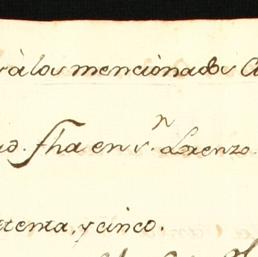 à los mencionados
fha en Sn. Lorenzo
tenta, y cinco.